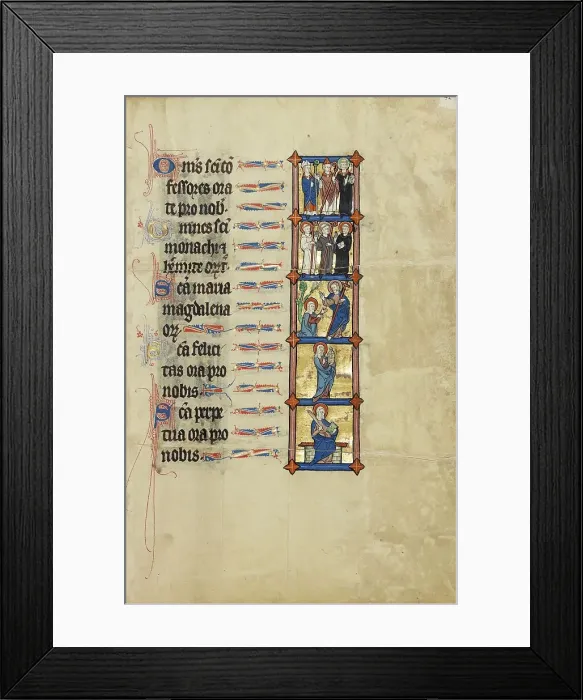 Om̄s sc̄i cō
fessores ora
te pro nob.
Omnes sc̄i
monachi ⁊
hēmite or̄t.
Sc̄a maria
magdalena
or̄
Sc̄a felici
tas ora pro
nobis.
Sc̄a perpe
tua ora pro
nobis.